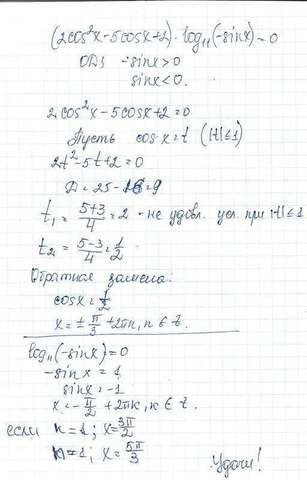 (2cos²x-5cosx+2)·log₁₁(-sinx)=0
ОДЗ -sinx>0
sinx<0.
2cos²x-5cosx+2=0
Пусть cosx=t (|t|≤1)
2t²-5t+2=0
Д=25-16=9
t₁=(5+3)/4=2 - не удовл. усл. при |t|≤1
t₂=(5-3)/4=1/2.
Обратная замена:
cosx=1/2
x=±π/3+2πn, n∈Z.
log₁₁(-sinx)=0
-sinx=1,
sinx=-1
x=-π/2+2πk, k∈Z.
если k=1; x=3π/2
n=1; x=5π/3
Удачи!